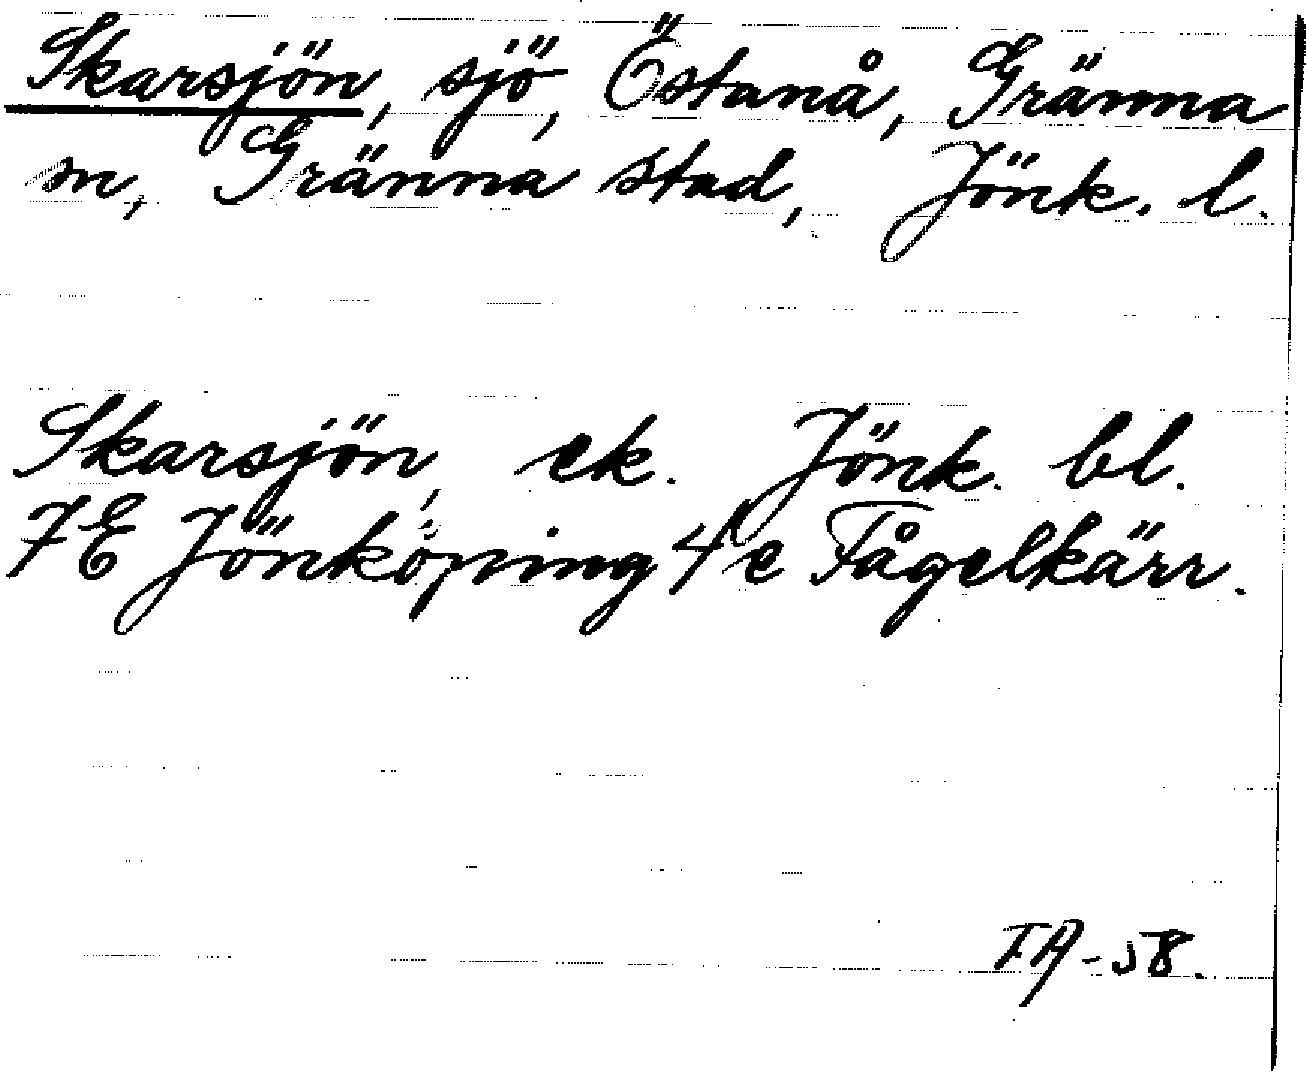 Skarsjön, sjö, Östanå, Gränna
sn, Gränna stad, Jönk. l.
Skarsjön, ek. Jönk. bl.
7E Jönköping 4e Fågelkärr.
IA-58.